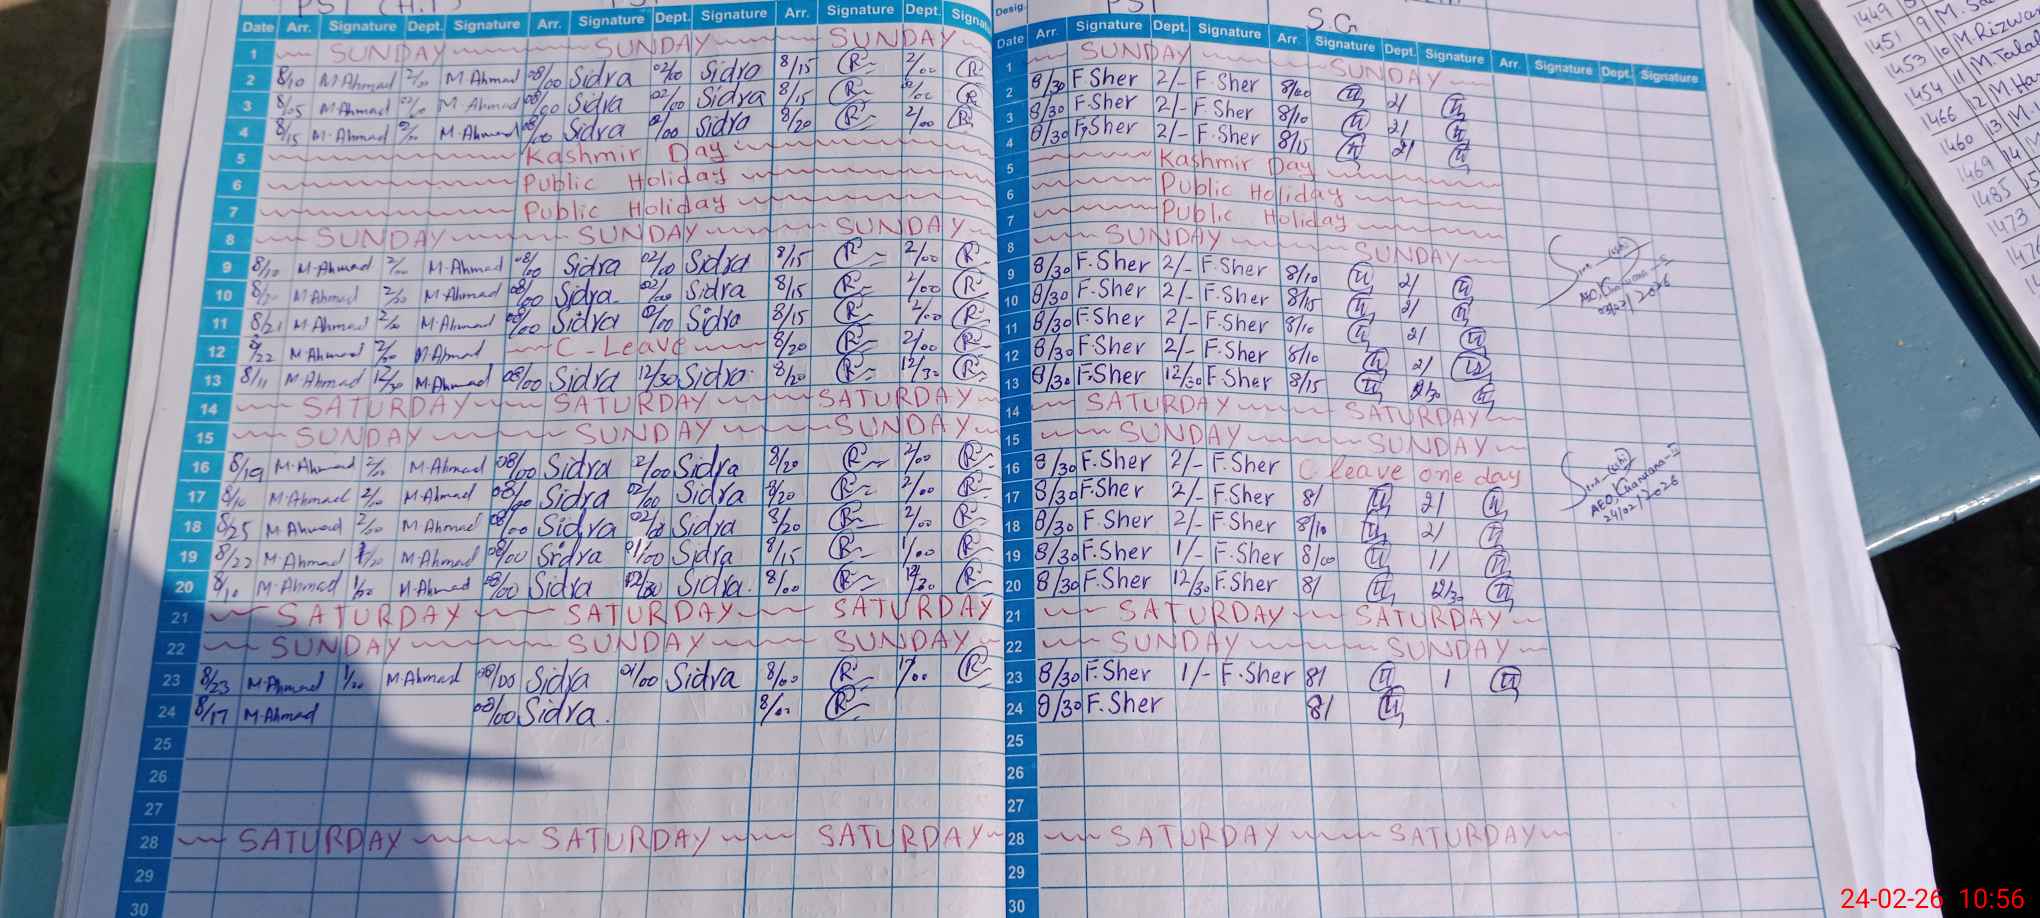 PST (H.T) PST
Date Arr. Signature Dept. Signature Arr. Signature Dept. Signature Arr. Signature Dept. Signat
1 SUNDAY SUNDAY SUNDAY
2 8/10 M.Ahmad 2/00 M.Ahmad 08/00 Sidra 02/00 Sidra 8/15 R 2/00 R
3 8/05 M.Ahmad M.Ahmad 08/00 Sidra 02/00 Sidra 8/15 R 2/00 R
4 8/15 M.Ahmad M.Ahmad Sidra 02/00 Sidra 8/20 R 2/00 R
5 Kashmir Day
6 Public Holiday
7 Public Holiday
8 SUNDAY SUNDAY SUNDAY
9 8/10 M.Ahmad 2/00 M.Ahmad 08/00 Sidra 02/00 Sidra 8/15 R 2/00 R
10 M.Ahmad 2/00 M.Ahmad 08/00 Sidra 02/00 Sidra 8/15 R 2/00 R
11 8/21 M.Ahmad 2/00 M.Ahmad 08/00 Sidra 02/00 Sidra 8/15 R 2/00 R
12 8/22 M.Ahmad 2/00 M.Ahmad C-Leave 8/20 R 2/00 R
13 8/11 M.Ahmad 12/30 M.Ahmad 08/00 Sidra 12/30 Sidra 8/20 R 12/30 R
14 SATURDAY SATURDAY SATURDAY
15 SUNDAY SUNDAY SUNDAY
16 8/19 M.Ahmad 2/00 M.Ahmad 08/00 Sidra 02/00 Sidra 8/20 R 2/00 R
17 8/10 M.Ahmad 2/00 M.Ahmad 08/00 Sidra 02/00 Sidra 8/20 R 2/00 R
18 8/25 M.Ahmad 2/00 M.Ahmad 08/00 Sidra 02/00 Sidra 8/20 R 2/00 R
19 8/22 M.Ahmad M.Ahmad 08/00 Sidra 01/00 Sidra 8/15 R 1/00 R
20 8/10 M.Ahmad M.Ahmad 08/00 Sidra 12/30 Sidra. 8/00 R 12/30 R
21 SATURDAY SATURDAY SATURDAY
22 SUNDAY SUNDAY SUNDAY
23 8/23 M.Ahmad M.Ahmad 08/00 Sidra 01/00 Sidra 8/00 R 1/00 R
24 8/17 M.Ahmad 08/00 Sidra. 8/00 R
25
26
27
28 SATURDAY SATURDAY SATURDAY
29
30
Desig. PST S.G
Date Arr. Signature Dept. Signature Arr. Signature Dept. Signature Arr. Signature Dept. Signature
1 SUNDAY SUNDAY
2 8/30 F.Sher 2/- F.Sher 8/00 2/
3 8/30 F.Sher 2/- F.Sher 8/10 2/
4 8/30 F.Sher 2/- F.Sher 8/15 2/
5 Kashmir Day
6 Public Holiday
7 Public Holiday
8 SUNDAY SUNDAY
9 8/30 F.Sher 2/- F.Sher 8/10 2/
10 8/30 F.Sher 2/- F.Sher 8/15 2/
11 8/30 F.Sher 2/- F.Sher 8/10 2/
12 8/30 F.Sher 2/- F.Sher 8/10 2/
13 8/30 F.Sher 12/30 F.Sher 8/15
14 SATURDAY SATURDAY
15 SUNDAY SUNDAY
16 8/30 F.Sher 2/- F.Sher C leave one day
17 8/30 F.Sher 2/- F.Sher 8/ 2/
18 8/30 F.Sher 2/- F.Sher 8/10 2/
19 8/30 F.Sher 1/- F.Sher 8/00 1/
20 8/30 F.Sher 12/30 F.Sher 8/ 12/30
21 SATURDAY SATURDAY
22 SUNDAY SUNDAY
23 8/30 F.Sher 1/- F.Sher 8/ 1
24 8/30 F.Sher 8/
25
26
27
28 SATURDAY SATURDAY
29
30
AEO,
24/02/2026
1449
1451 9 M.
1453 10 M.Rizwa
1454 11
1466 12
1460 13 M.
1469 14
1485 15
1473
24-02-26 10:56